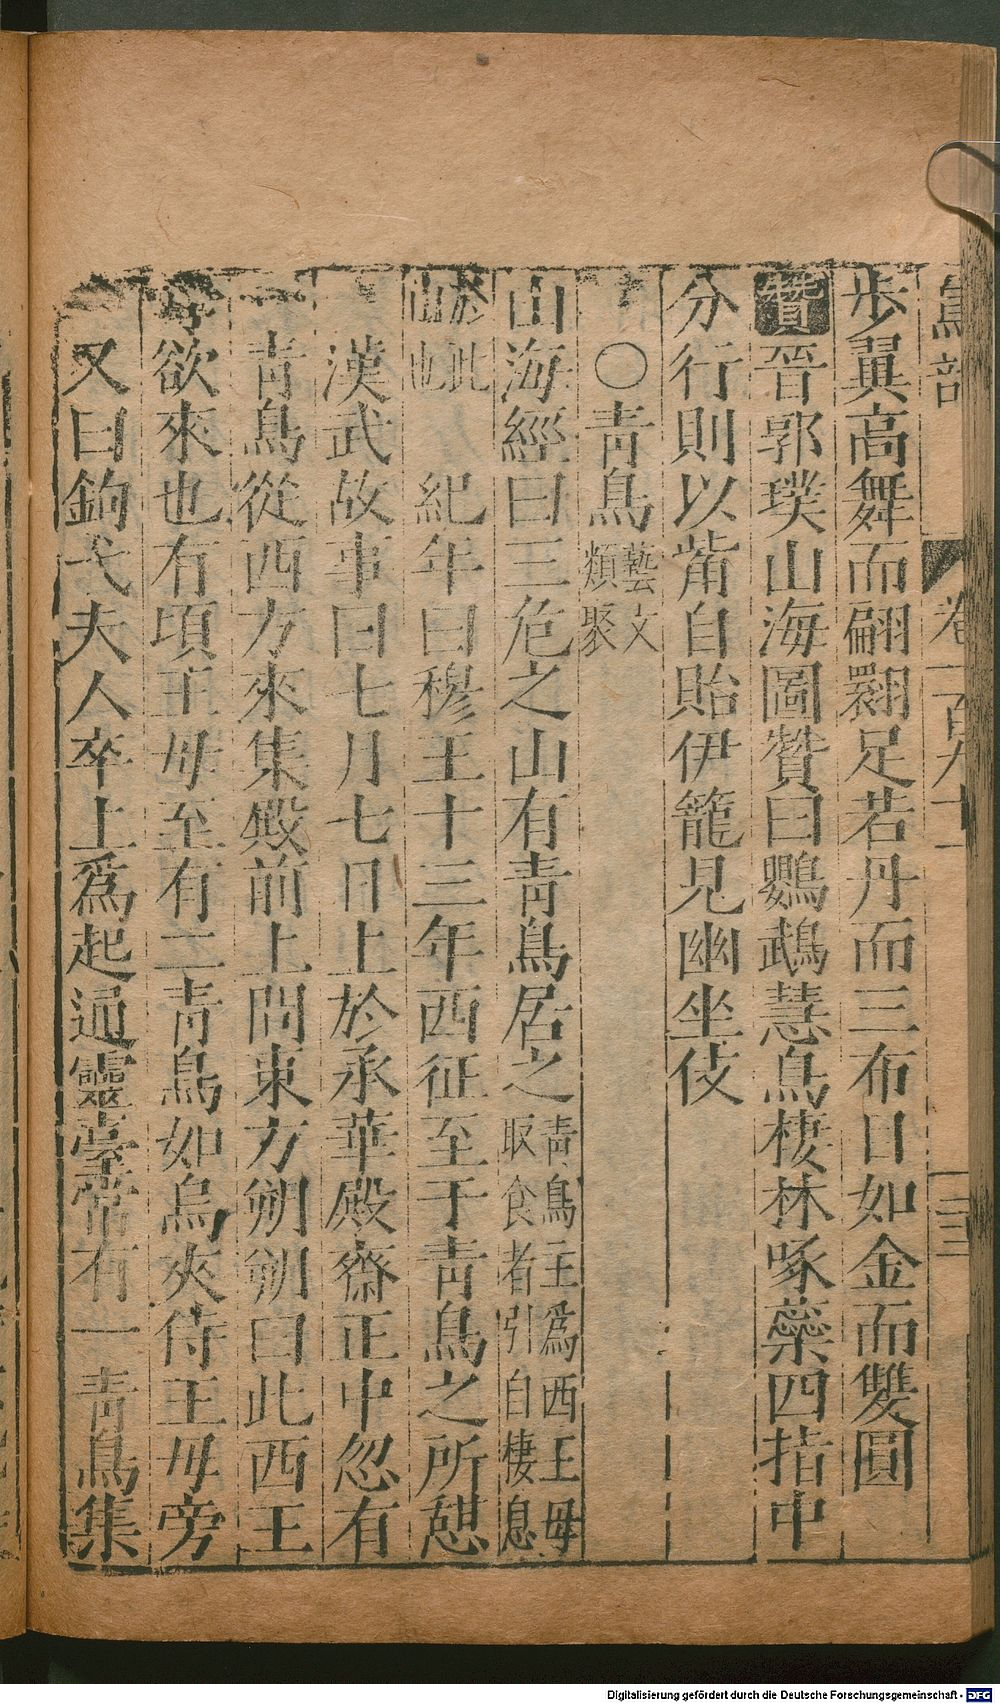 鳥部 卷一百九十一 二三
步翼高舞而翩翾足若丹而三布目如金而雙圓
贊晉郭璞山海圖贊曰鸚鵡慧鳥棲林啄蘂四指中
分行則以觜自貽伊籠見幽坐伎
○靑鳥藝文類聚
山海經曰三危之山有靑鳥居之靑鳥主爲西王母取食者引自棲息
於此山也 紀年曰穆王十三年西征至于靑鳥之所憇
漢武故事曰七月七日上於承華殿齋正中忽有
一靑鳥從西方來集殿前上問東方朔朔曰此西王
母欲來也有頃王母至有二靑鳥如烏夾侍王母旁
又曰鉤弋夫人卒上爲起通靈臺常有一靑鳥集
Digitalisierung gefördert durch die Deutsche Forschungsgemeinschaft - DFG